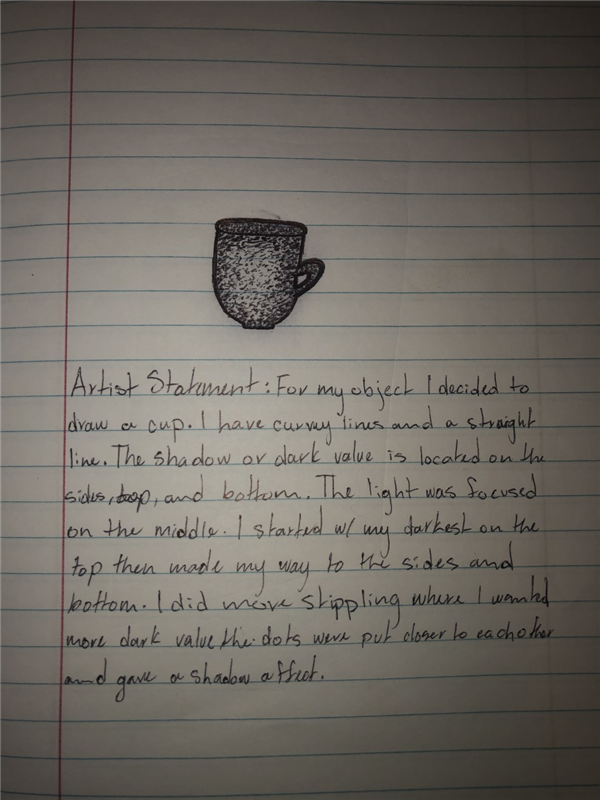 Artist Statment: For my object I decided to
draw a cup. I have curvey lines and a straight
line. The shadow or dark value is located on the
sides, top, and bottom. The light was focused
on the middle. I started w/ my darkest on the
top then made my way to the sides and
bottom. I did more stippling where I wanted
more dark value the dots were put closer to eachother
and gave a shadow affect.